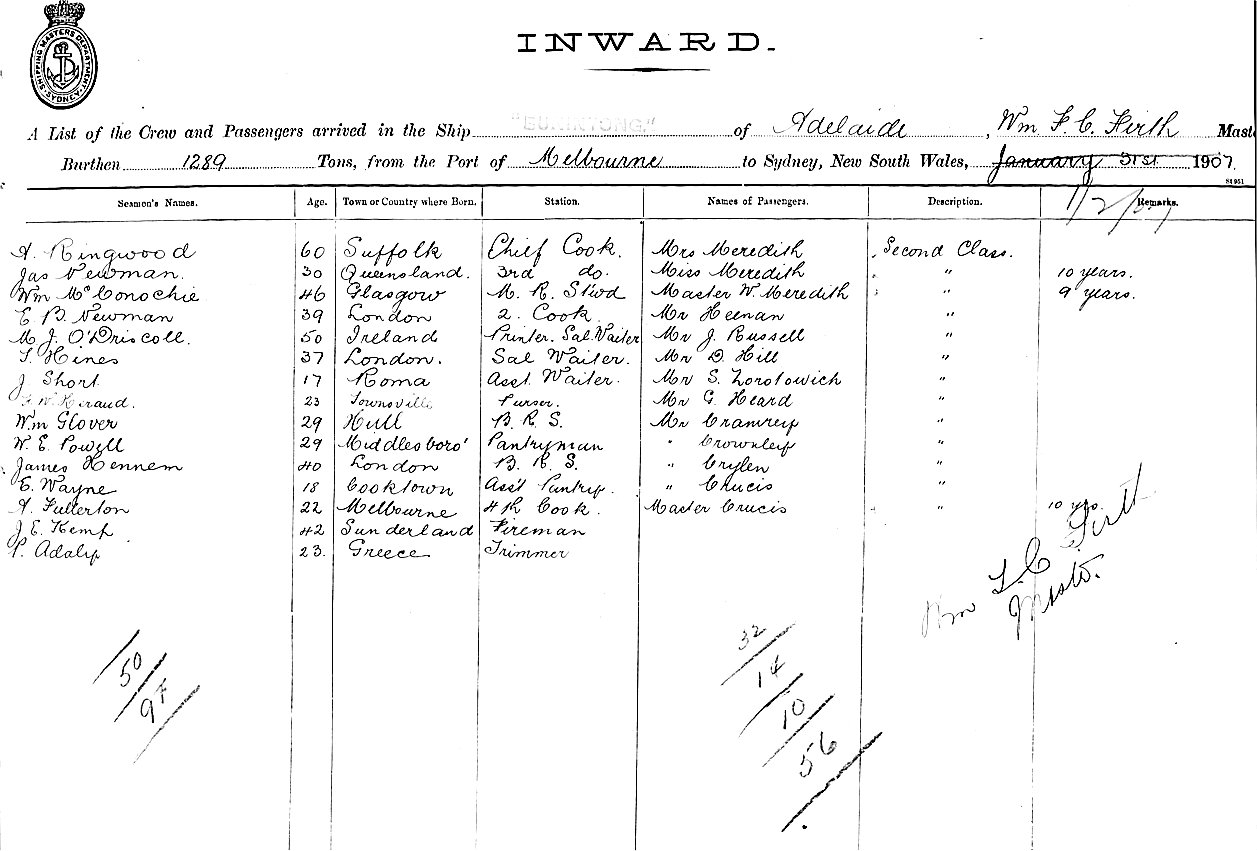 SHIPPING MASTERS DEPARTMENT SYDNEY
INWARD.
A List of the Crew and Passengers arrived in the Ship of Adelaide, Wm F. C. Firth Mast
Burthen 1289 Tons, from the Port of Melbourne to Sydney, New South Wales, January 31st 1907.
S1951
1/2/07
Seamen's Names. Age. Town or Country where Born. Station. Names of Passengers. Description. Remarks.
A. Ringwood 60 Suffolk Chief Cook. Mrs Meredith Second Class.
Jas Newman. 30 Queensland. 3rd do. Miss Meredith " 10 years.
Wm McConochie 46 Glasgow M. R. Stwd Master W. Meredith " 9 years.
E B. Newman 39 London 2. Cook. Mr Heenan "
M J. O'Driscoll. 50 Ireland Printer. Sal. Waiter Mr J. Russell "
T. Hines 37 London. Sal Waiter. Mr D. Hill "
J. Short 17 Roma Asst. Waiter. Mr S. Zorotowich "
23 Townsville Purser. Mr G. Heard "
Wm Glover 29 Hull B. R. S. Mr "
W. E. Powell 29 Middlesboro' Pantryman " "
James Hennem 40 London B. R. S. " "
E. Wayne 18 Cooktown Ass't Pantry. " Crucis "
A. Fullerton 22 Melbourne 4th Cook. Master Crucis " 10 yrs.
J E. Kemp 42 Sunderland Fireman
P. Adalip 23. Greece Trimmer
Wm F. C Firth
Master.
50
97
32
14
10
56